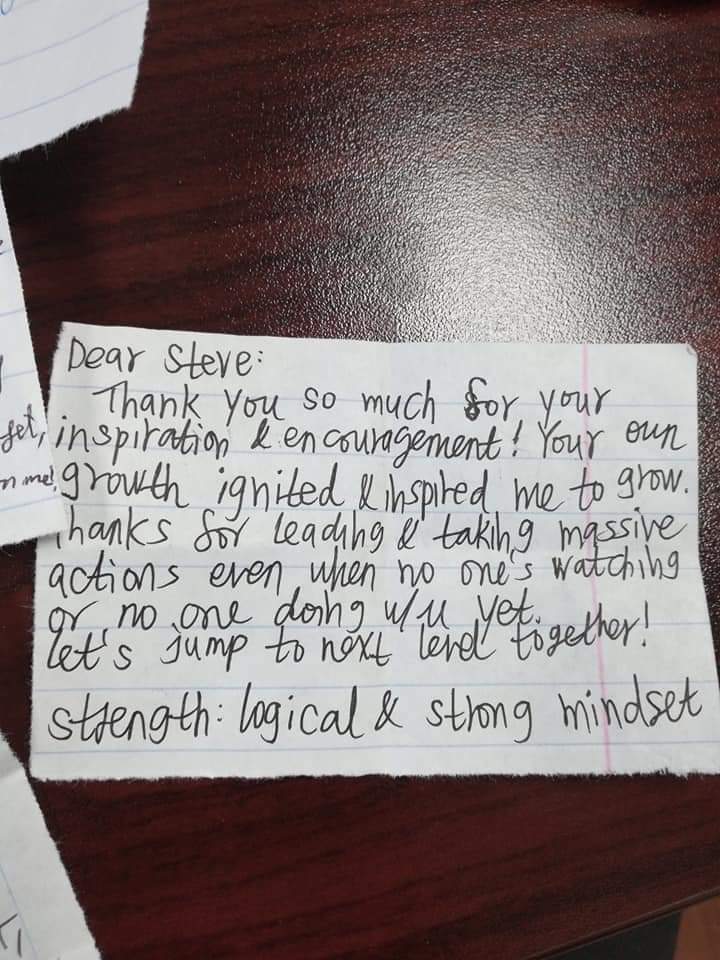 Dear Steve:
Thank you so much for your
inspiration & encouragement! Your own
growth ignited & inspired me to grow.
Thanks for leading & taking massive
actions even when no one's watching
or no one doing w/u yet.
let's jump to next level together!
strength: logical & strong mindset
me!